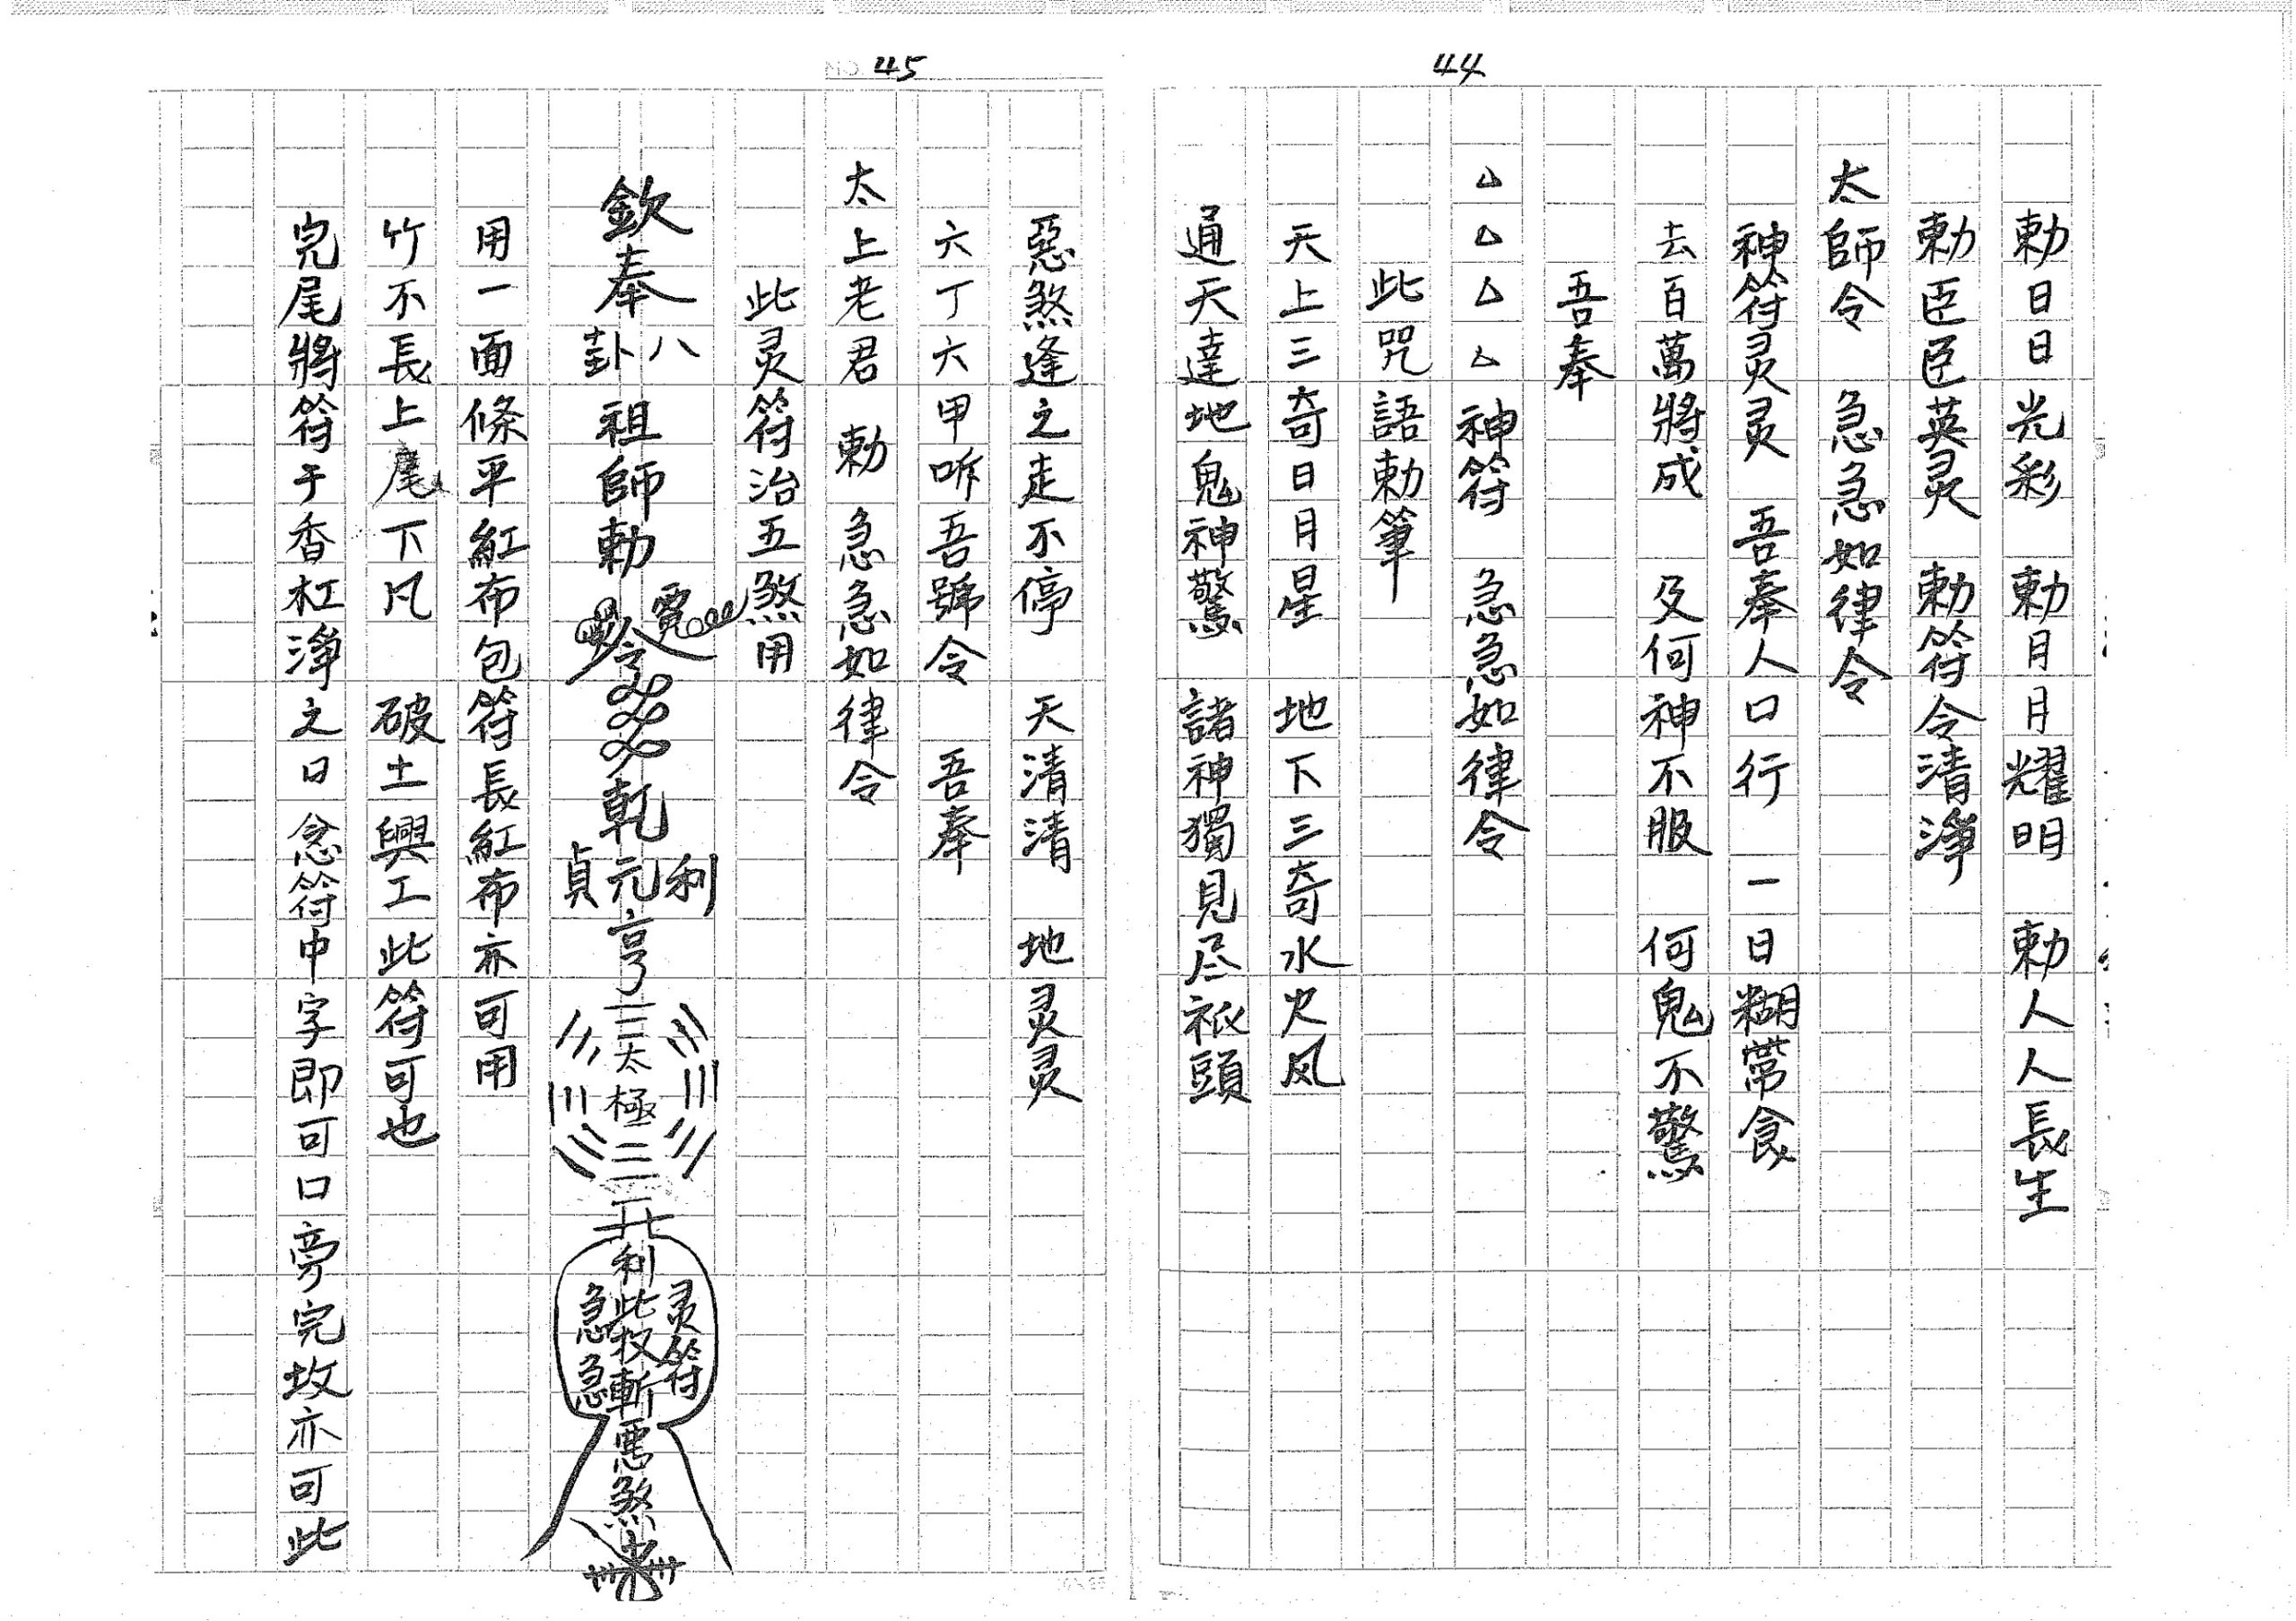 44
勅日日光彩　勅月月耀明　勅人人長生
勅臣臣英灵　勅符令清淨
太師令　急急如律令
神符灵灵　吾奉人口行　一日糊常食
去百萬將成　及何神不服　何鬼不驚
吾奉
△△△△神符　急急如律令
此咒語勅筆
天上三奇日月星　地下三奇水火风
通天達地鬼神驚　諸神獨見尽衹頭
45
惡煞逢之走不停　天清清　地灵灵
六丁六甲咋吾號令　吾奉
太上老君　勅　急急如律令
此灵符治五煞用
欽奉八卦祖師勅令乾元亨利貞
太極
利此权斬惡煞
灵符
急急
用一面條平紅布包符長紅布亦可用
竹不長上尾下凡　破土興工此符可也
完尾將符于香杠淨之日念符中字即可口旁完坟亦可此